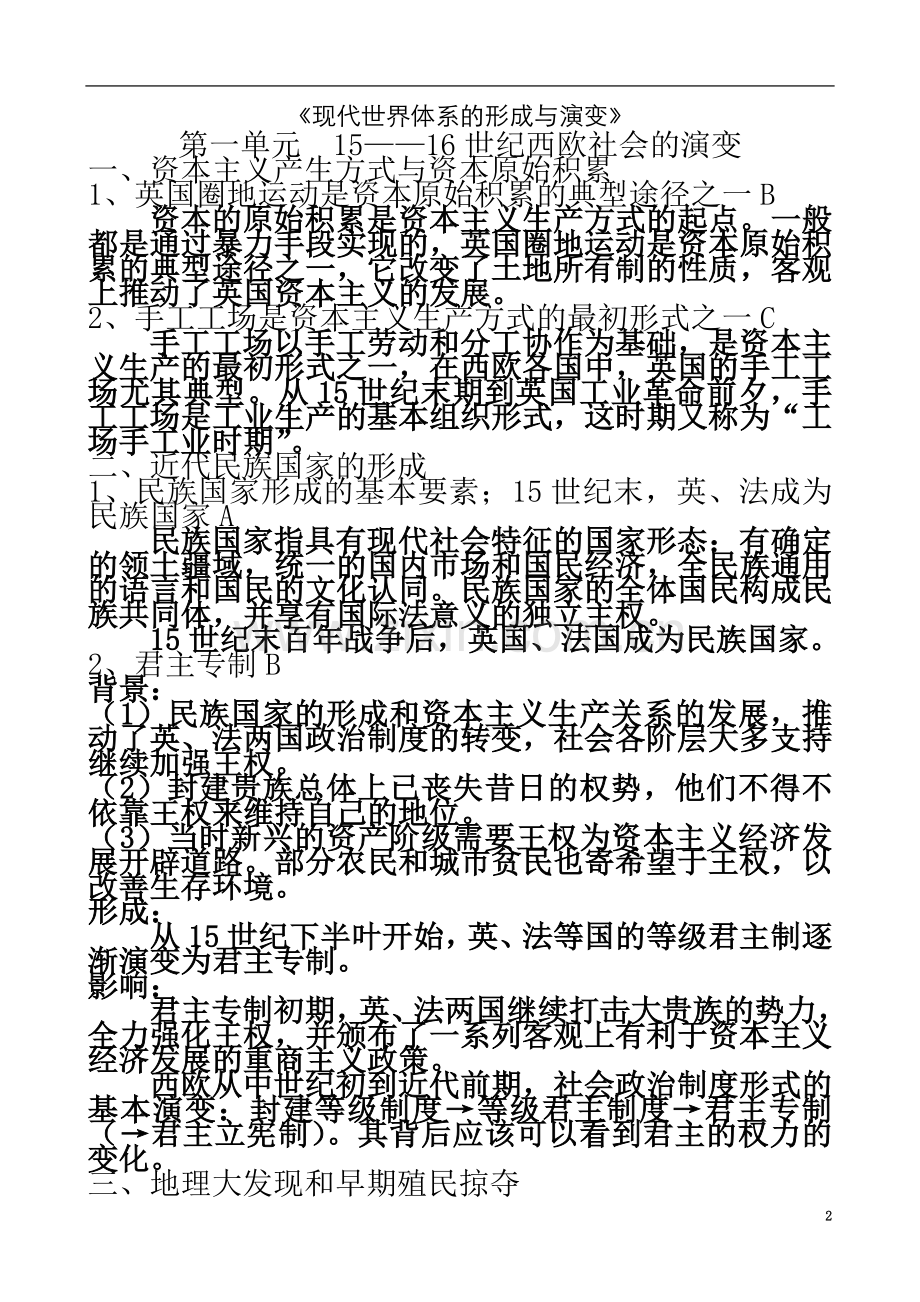 《现代世界体系的形成与演变》
第一单元 15——16世纪西欧社会的演变
一、资本主义产生方式与资本原始积累
1、英国圈地运动是资本原始积累的典型途径之一B
资本的原始积累是资本主义生产方式的起点。一般
都是通过暴力手段实现的，英国圈地运动是资本原始积
累的典型途径之一，它改变了土地所有制的性质，客观
上推动了英国资本主义的发展。
2、手工工场是资本主义生产方式的最初形式之一C
手工工场以手工劳动和分工协作为基础，是资本主
义生产的最初形式之一，在西欧各国中，英国的手工工
场尤其典型。从15世纪末期到英国工业革命前夕，手
工工场是工业生产的基本组织形式，这时期又称为“工
场手工业时期”。
二、近代民族国家的形成
1、民族国家形成的基本要素；15世纪末，英、法成为
民族国家A
民族国家指具有现代社会特征的国家形态：有确定
的领土疆域，统一的国内市场和国民经济，全民族通用
的语言和国民的文化认同。民族国家的全体国民构成民
族共同体，并享有国际法意义的独立主权。
15世纪末百年战争后，英国、法国成为民族国家。
2、君主专制B
背景：
（1）民族国家的形成和资本主义生产关系的发展，推
动了英、法两国政治制度的转变，社会各阶层大多支持
继续加强王权。
（2）封建贵族总体上已丧失昔日的权势，他们不得不
依靠王权来维持自己的地位。
（3）当时新兴的资产阶级需要王权为资本主义经济发
展开辟道路。部分农民和城市贫民也寄希望于王权，以
改善生存环境。
形成：
从15世纪下半叶开始，英、法等国的等级君主制逐
渐演变为君主专制。
影响：
君主专制初期，英、法两国继续打击大贵族的势力，
全力强化王权，并颁布了一系列客观上有利于资本主义
经济发展的重商主义政策。
西欧从中世纪初到近代前期，社会政治制度形式的
基本演变：封建等级制度→等级君主制度→君主专制
（→君主立宪制）。其背后应该可以看到君主的权力的
变化。
三、地理大发现和早期殖民掠夺
2